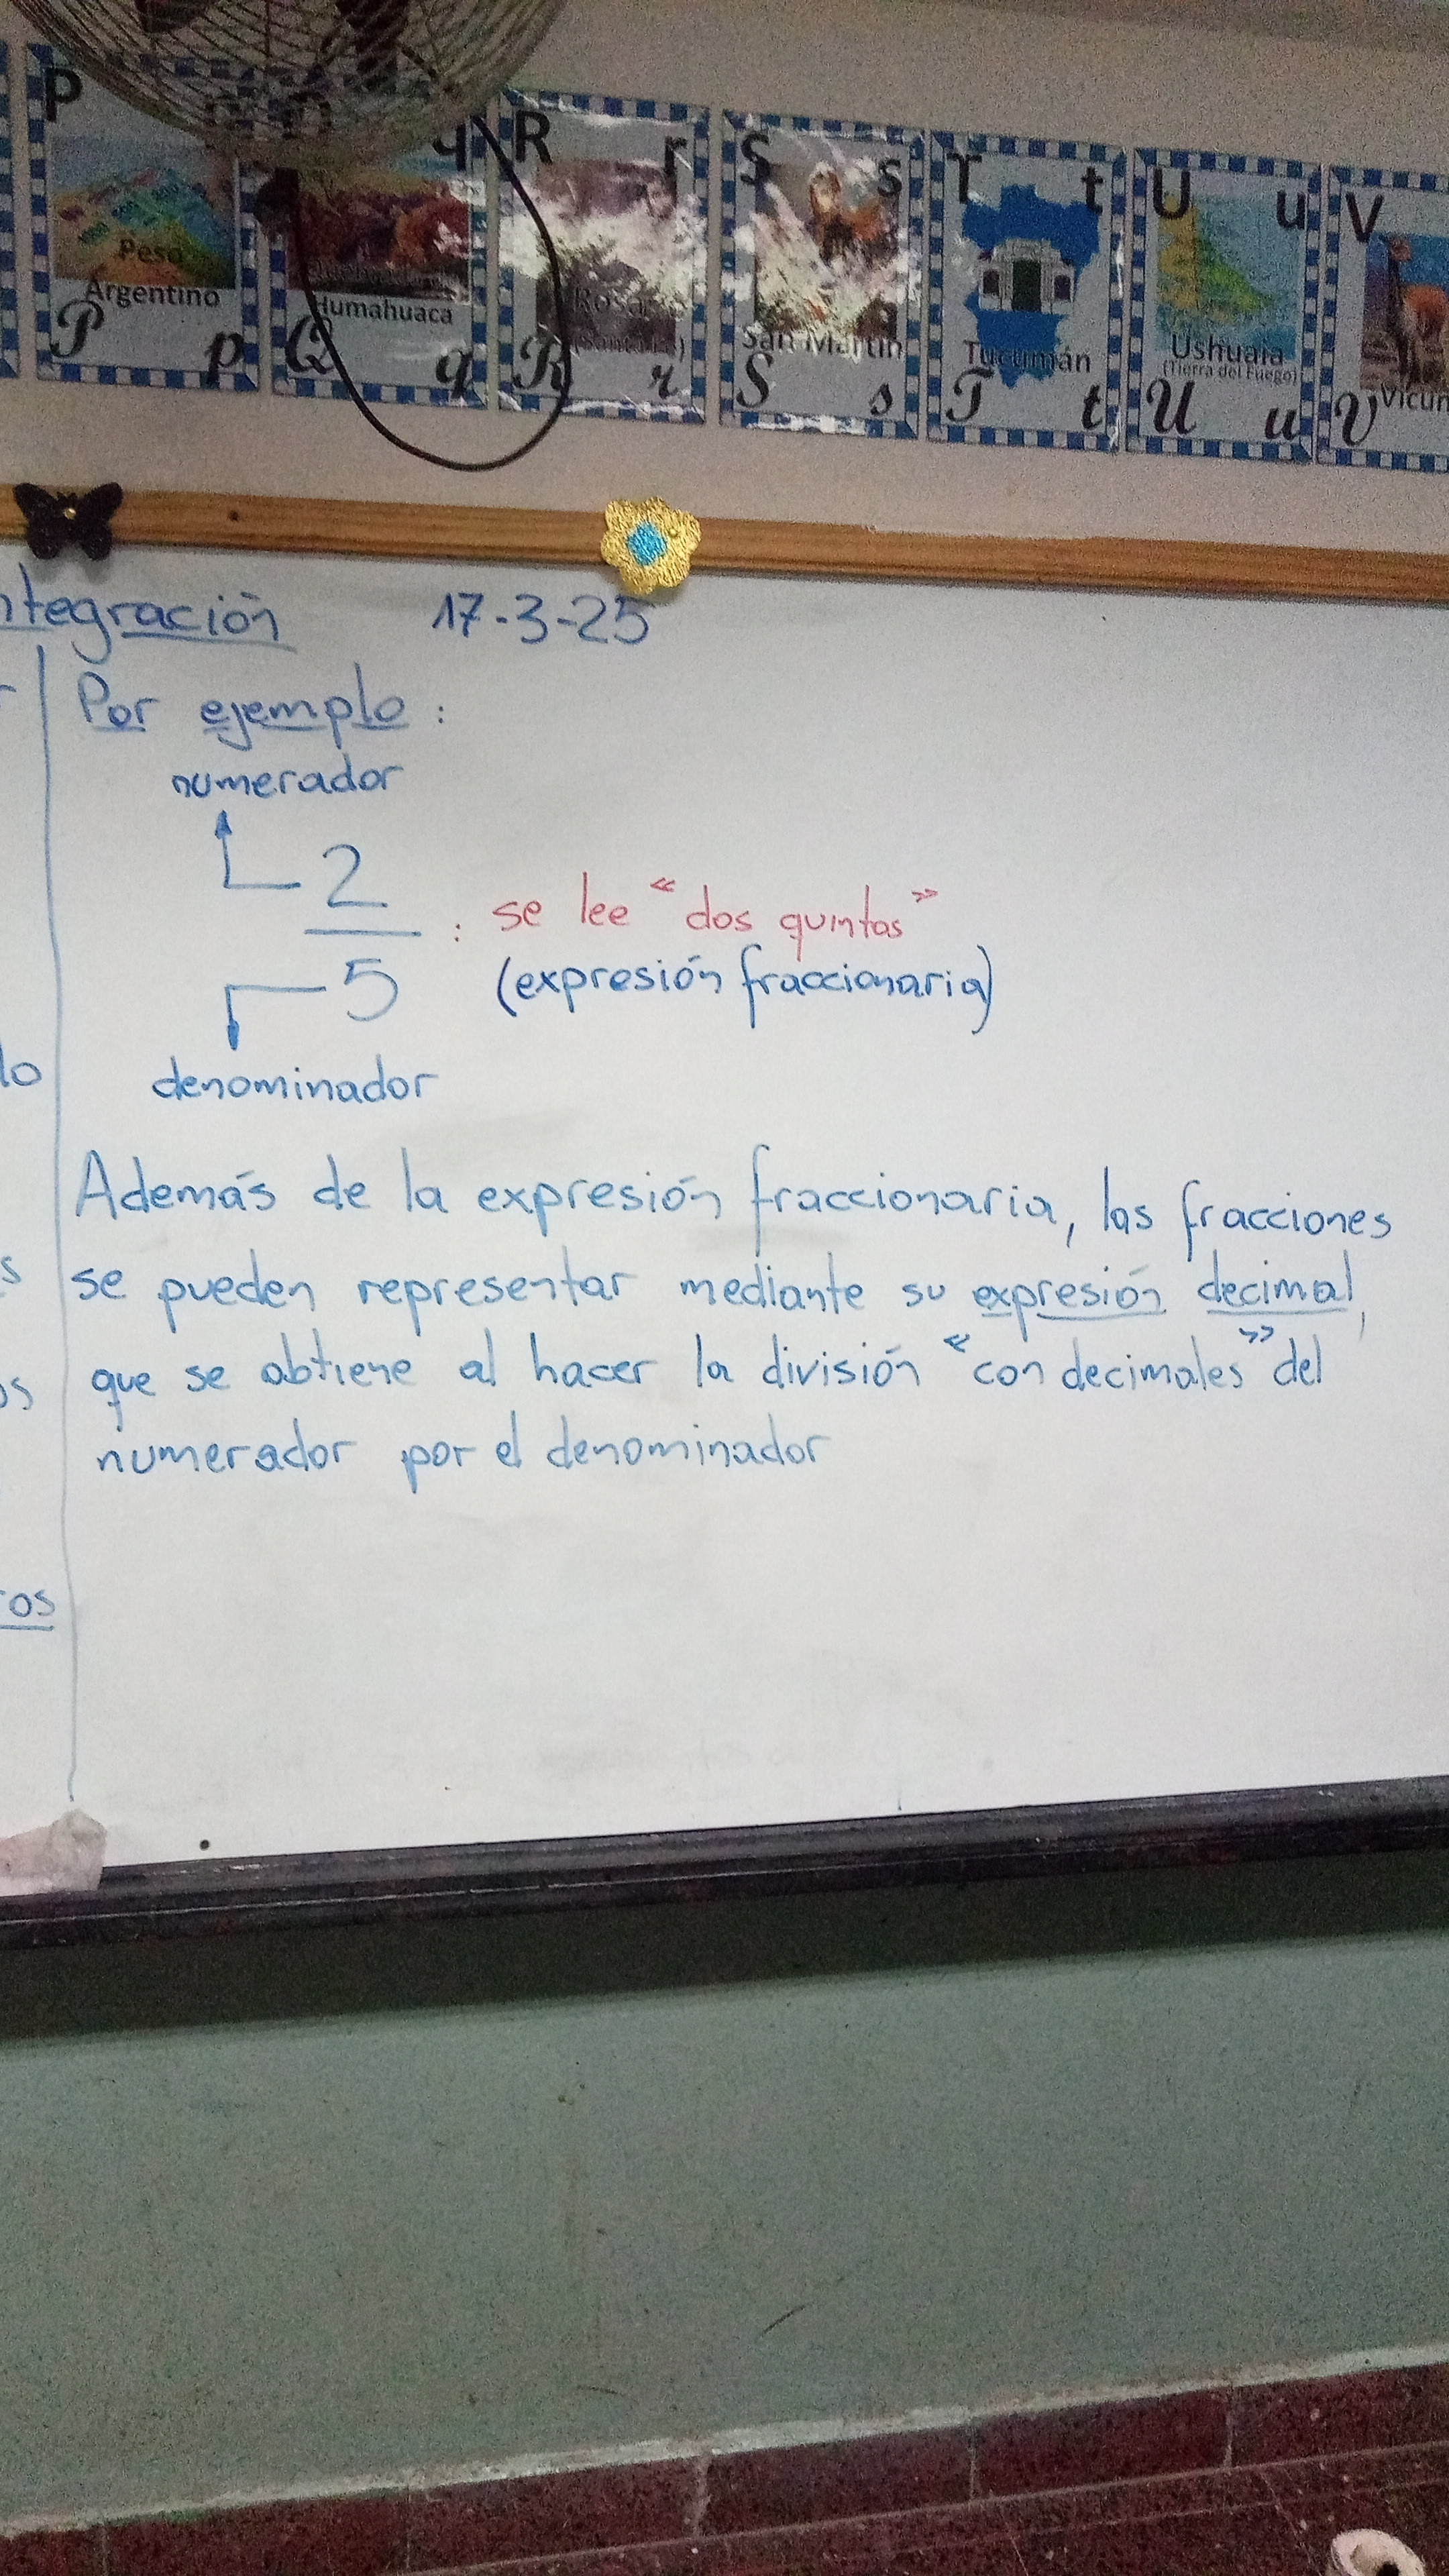 P
Peso
Argentino
P p
q
Humahuaca
Q q
R r
R r
S s
San Martín
S s
T t
Tucumán
T t
U u
Ushuaia
(Tierra del Fuego)
U u
V
V
ntegración 17-3-25
Por ejemplo:
numerador
2
5
: se lee "dos quintos"
(expresión fraccionaria)
denominador
Además de la expresión fraccionaria, las fracciones
se pueden representar mediante su expresión decimal,
que se obtiene al hacer la división "con decimales" del
numerador por el denominador
lo
s
os
ros